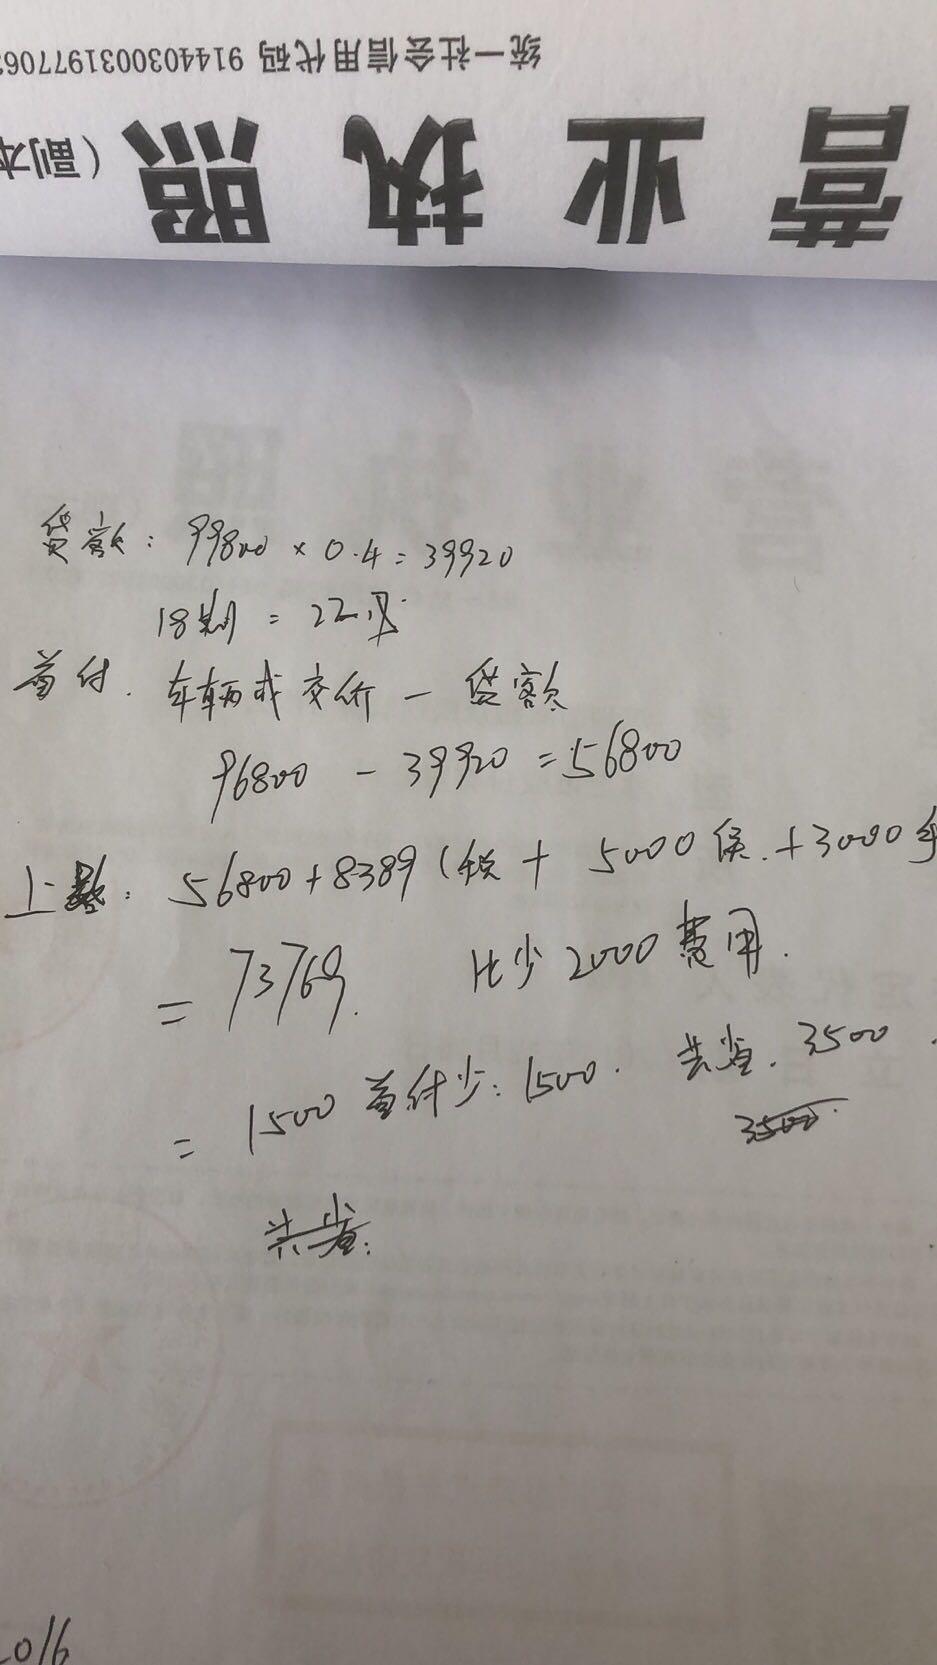 统一社会信用代码 91440300319770６
营业执照（副本
贷额：99800 × 0.4 = 39920
18期 = 22
首付．车辆成交价 — 贷额
96800 - 39920 = 56800
上 : 56800+8389（税 + 5000 保．+3000
= 73769． 比少2000费用．
= 1500 首付少：1500． 共省．3500
3500
共省：
2016